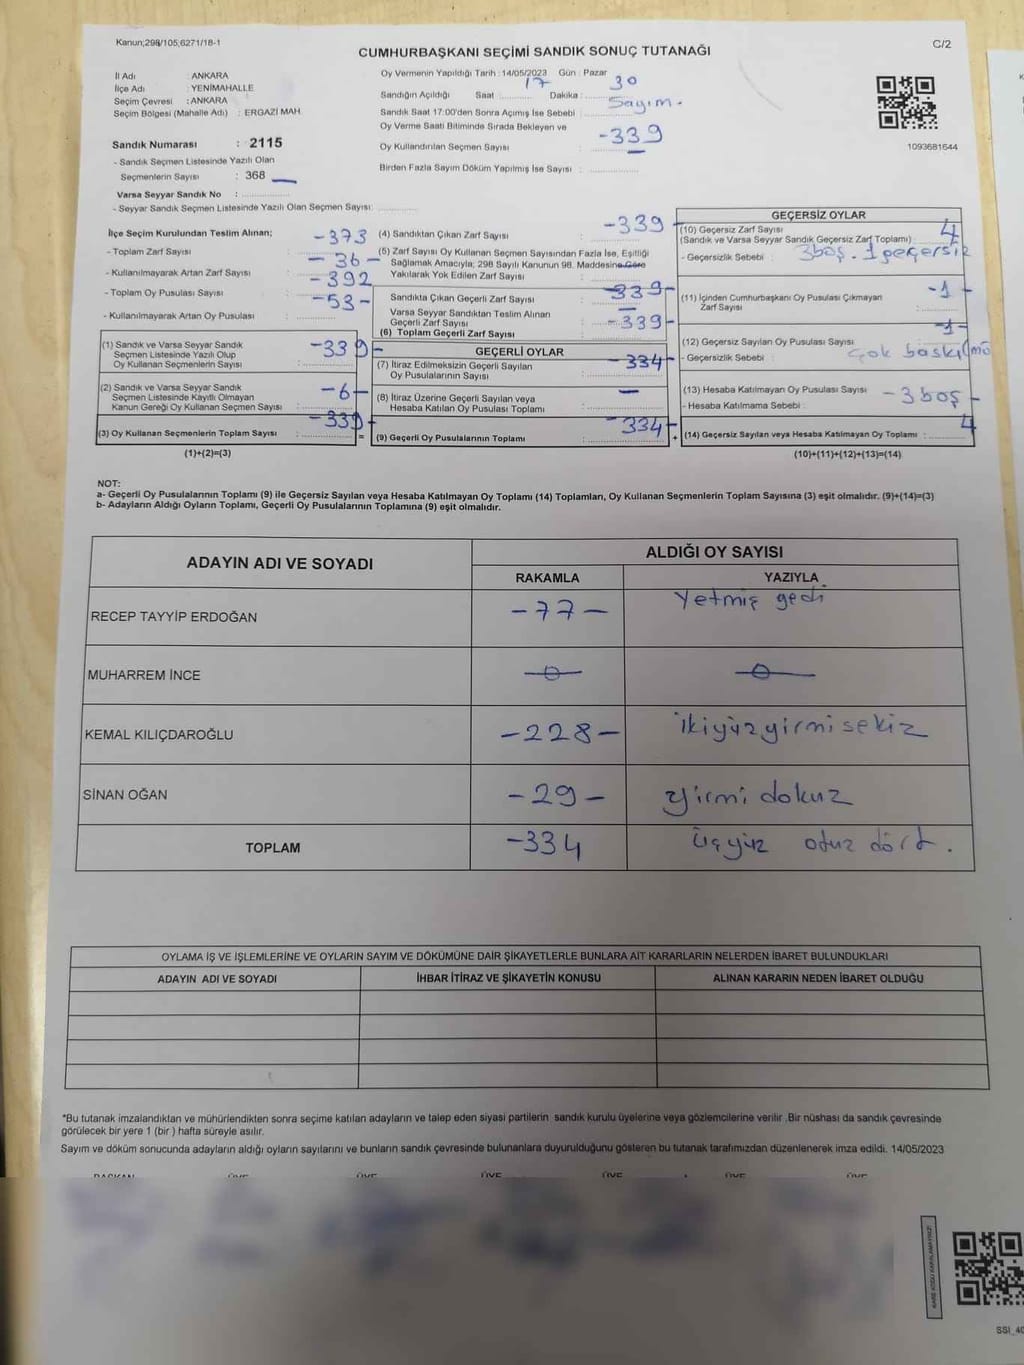 Kanun;298/105;6271/18-1
C/2
CUMHURBAŞKANI SEÇİMİ SANDIK SONUÇ TUTANAĞI
İl Adı : ANKARA
İlçe Adı : YENİMAHALLE
Seçim Çevresi : ANKARA
Seçim Bölgesi (Mahalle Adı) : ERGAZİ MAH
Sandık Numarası : 2115
- Sandık Seçmen Listesinde Yazılı Olan
Seçmenlerin Sayısı : 368
Varsa Seyyar Sandık No :
- Seyyar Sandık Seçmen Listesinde Yazılı Olan Seçmen Sayısı:
Oy Vermenin Yapıldığı Tarih : 14/05/2023 Gün : Pazar
Sandığın Açıldığı Saat : 17 Dakika : 30
Sandık Saat 17:00'den Sonra Açımış İse Sebebi : Sayım.
Oy Verme Saati Bitiminde Sırada Bekleyen ve
Oy Kullandırılan Seçmen Sayısı : -339
Birden Fazla Sayım Döküm Yapılmış İse Sayısı :
1093681644
İlçe Seçim Kurulundan Teslim Alınan;
- Toplam Zarf Sayısı : -373
- Kullanılmayarak Artan Zarf Sayısı : -36-
- Toplam Oy Pusulası Sayısı : -392
- Kullanılmayarak Artan Oy Pusulası : -53-
(1) Sandık ve Varsa Seyyar Sandık
Seçmen Listesinde Yazılı Olup
Oy Kullanan Seçmenlerin Sayısı : -339-
(2) Sandık ve Varsa Seyyar Sandık
Seçmen Listesinde Kayıtlı Olmayan
Kanun Gereği Oy Kullanan Seçmen Sayısı : -6-
(3) Oy Kullanan Seçmenlerin Toplam Sayısı : -339-
(1)+(2)=(3)
(4) Sandıktan Çıkan Zarf Sayısı : -339-
(5) Zarf Sayısı Oy Kullanan Seçmen Sayısından Fazla İse, Eşitliği
Sağlamak Amacıyla; 298 Sayılı Kanunun 98. Maddesine Göre
Yakılarak Yok Edilen Zarf Sayısı :
Sandıkta Çıkan Geçerli Zarf Sayısı : -339-
Varsa Seyyar Sandıktan Teslim Alınan
Geçerli Zarf Sayısı : —
(6) Toplam Geçerli Zarf Sayısı : -339-
GEÇERLİ OYLAR
(7) İtiraz Edilmeksizin Geçerli Sayılan
Oy Pusulalarının Sayısı : -334-
(8) İtiraz Üzerine Geçerli Sayılan veya
Hesaba Katılan Oy Pusulası Toplamı : —
= (9) Geçerli Oy Pusulalarının Toplamı : -334-
GEÇERSİZ OYLAR
(10) Geçersiz Zarf Sayısı
(Sandık ve Varsa Seyyar Sandık Geçersiz Zarf Toplamı) : 4
- Geçersizlik Sebebi : 3boş. 1geçersik
(11) İçinden Cumhurbaşkanı Oy Pusulası Çıkmayan
Zarf Sayısı : -1-
(12) Geçersiz Sayılan Oy Pusulası Sayısı : -1-
- Geçersizlik Sebebi : Çok baskılmo
(13) Hesaba Katılmayan Oy Pusulası Sayısı : -3boş-
- Hesaba Katılmama Sebebi :
+ (14) Geçersiz Sayılan veya Hesaba Katılmayan Oy Toplamı : 4
(10)+(11)+(12)+(13)=(14)
NOT:
a- Geçerli Oy Pusulalarının Toplamı (9) ile Geçersiz Sayılan veya Hesaba Katılmayan Oy Toplamı (14) Toplamları, Oy Kullanan Seçmenlerin Toplam Sayısına (3) eşit olmalıdır. (9)+(14)=(3)
b- Adayların Aldığı Oyların Toplamı, Geçerli Oy Pusulalarının Toplamına (9) eşit olmalıdır.
ADAYIN ADI VE SOYADI ALDIĞI OY SAYISI
RAKAMLA YAZIYLA
RECEP TAYYİP ERDOĞAN -77- Yetmiş yedi
MUHARREM İNCE -0- -0-
KEMAL KILIÇDAROĞLU -228- ikiyüzyirmisekiz
SİNAN OĞAN -29- yirmi dokuz
TOPLAM -334 üçyüz otuz dört.
OYLAMA İŞ VE İŞLEMLERİNE VE OYLARIN SAYIM VE DÖKÜMÜNE DAİR ŞİKAYETLERLE BUNLARA AİT KARARLARIN NELERDEN İBARET BULUNDUKLARI
ADAYIN ADI VE SOYADI İHBAR İTİRAZ VE ŞİKAYETİN KONUSU ALINAN KARARIN NEDEN İBARET OLDUĞU
*Bu tutanak imzalandıktan ve mühürlendikten sonra seçime katılan adayların ve talep eden siyasi partilerin sandık kurulu üyelerine veya gözlemcilerine verilir .Bir nüshası da sandık çevresinde
görülecek bir yere 1 (bir ) hafta süreyle asılır.
Sayım ve döküm sonucunda adayların aldığı oyların sayılarını ve bunların sandık çevresinde bulunanlara duyurulduğunu gösteren bu tutanak tarafımızdan düzenlenerek imza edildi. 14/05/2023
BAŞKAN ÜYE ÜYE ÜYE ÜYE ÜYE ÜYE